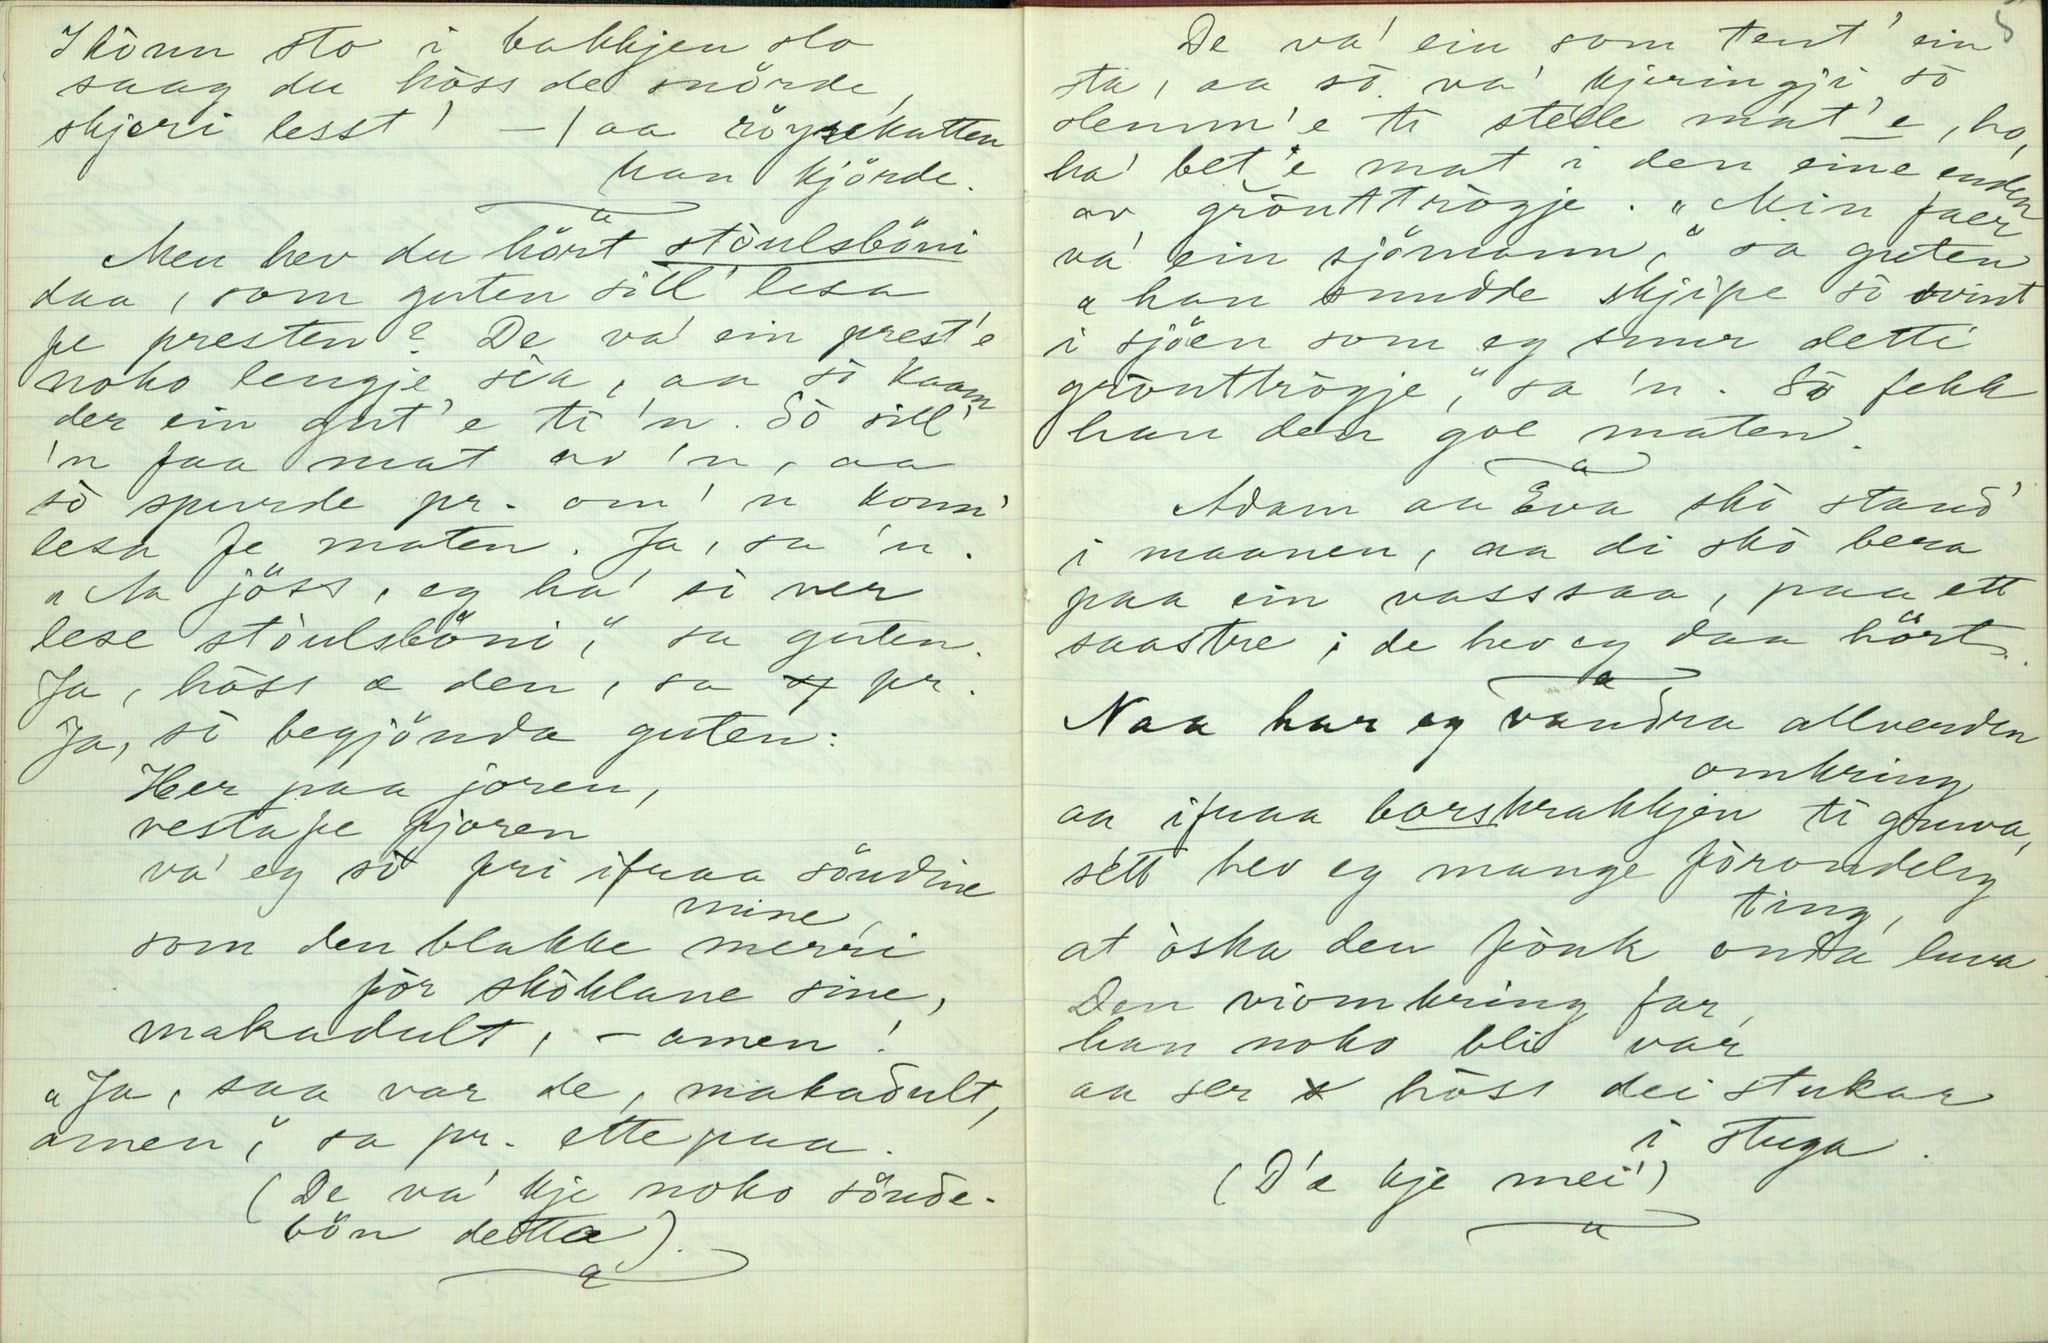 Ikònn sto i bakkjen slo
saag du hòss de snörde,
skjeri lesst! — | aa röysekatten
han kjörde.
a
Men hev du hört stòulsböni
daa, som guten sill' lesa
fe presten? De va' ein prest'e
noko lengje sia, aa sò kaam
der ein gut'e ti 'n. Sò sill'
'n faa mat av 'n, aa
sò spurde pr. om 'n konn'
lesa fe maten. Ja, sa 'n.
"Aa jöss, eg ha' si ver
lese stòulsböni," sa guten.
Ja, hòss æ den, sa pr.
Ja, sò begjönda guten:
Her paa joren,
vestafe fjoren
va' eg sò fri ifraa söndine
mine
som den blakke merri
för skòklane sine,
makadult, – amen!
"Ja, saa var de, makadult,
amen," sa pr. ettepaa.
(De va' kje noko sönde-
bön detta).
a
5
De va' ein som tent' ein
sta, aa sò va' kjeringji sò
slemm'e ti stelle mat'e, ho
ha' bet'e mat i den eine enden
av grònttrògje. "Min faer
va' ein sjömann," sa guten
"han snudde skjipe sò svint
i sjöen som eg snur detti
grònttrògje," sa 'n. Sò fekk
han den goe maten.
a
Adam aa Eva skò stand'
i maanen, aa di skò bera
paa ein vasssaa, paa ett
saastre; de hev eg daa hört.
a
Naa har eg vandra allverden
omkring
aa ifraa borskrakkjen ti gruva,
sétt hev eg mange förondelig
ting,
at òska den fònk onda luva.
Den viomkring far,
han noko bli var
aa ser hòss dei stukar
i stuga.
(D'æ kje mei')
a